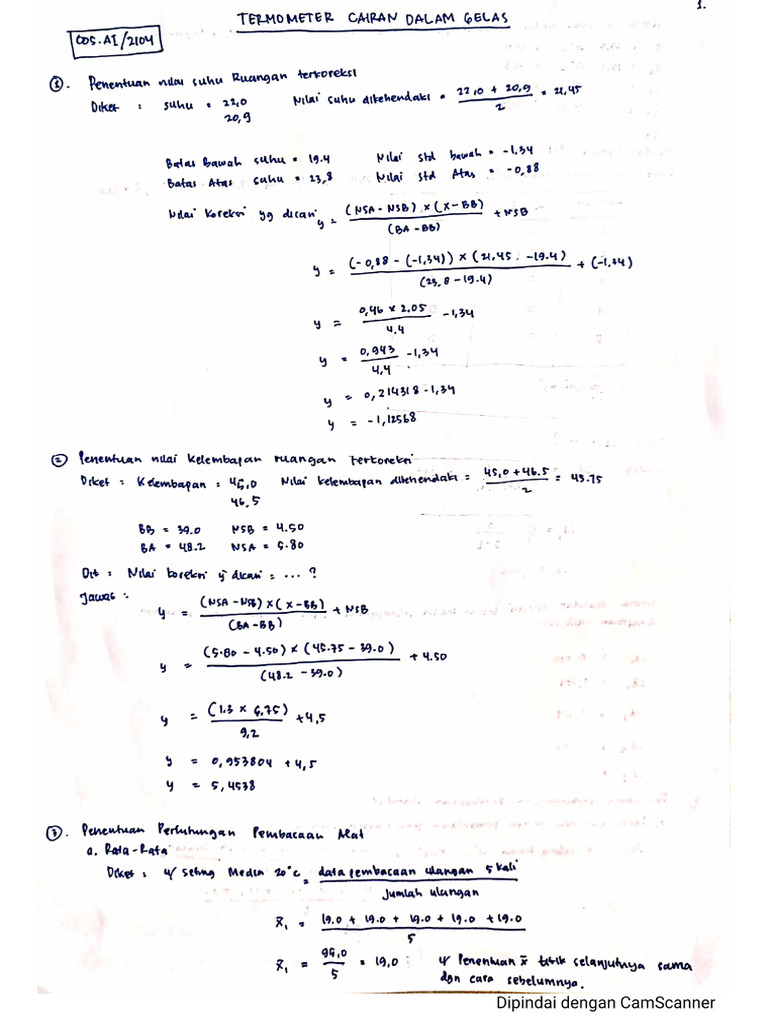 1.
TERMOMETER CAIRAN DALAM GELAS
COS.AI/2104
①. Penentuan nilai suhu Ruangan terkoreksi
Diket : suhu = 22,0 Nilai suhu dikehendaki = (22,0 + 20,9)/2 = 21,45
20,9
Batas Bawah suhu = 19.4 Nilai std bawah = -1,34
Batas Atas suhu = 23,8 Nilai std Atas = -0,88
Nilai koreksi yg dicari y = ((NSA - NSB) × (X - BB))/(BA - BB) + NSB
y = ((-0,88 - (-1,34)) × (21,45 - 19.4))/(23,8 - 19.4) + (-1,34)
y = (0,46 × 2,05)/4,4 - 1,34
y = 0,943/4,4 - 1,34
y = 0,214318 - 1,34
y = -1,12568
② Penentuan nilai kelembapan ruangan Terkoreksi
Diket : Kelembapan = 45,0 Nilai kelembapan dikehendaki = (45,0 + 46.5)/2 = 45.75
46,5
BB = 39.0 NSB = 4.50
BA = 48.2 NSA = 5.80
Dit : Nilai koreksi yg dicari = ... ?
Jawab :
y = ((NSA - NSB) × (X - BB))/(BA - BB) + NSB
y = ((5.80 - 4.50) × (45.75 - 39.0))/(48.2 - 39.0) + 4.50
y = (1.3 × 6,75)/9,2 + 4,5
y = 0,953804 + 4,5
y = 5,4538
③. Penentuan Perhitungan Pembacaan Alat
a. Rata-Rata
Diket : u/ seting Media 20°C = data pembacaan ulangan 5 kali/Jumlah ulangan
x̄₁ = (19.0 + 19.0 + 19.0 + 19.0 + 19.0)/5
x̄₁ = 95,0/5 = 19,0 : u/ Penentuan x̄ titik selanjutnya sama
dgn cara sebelumnya.
Dipindai dengan CamScanner